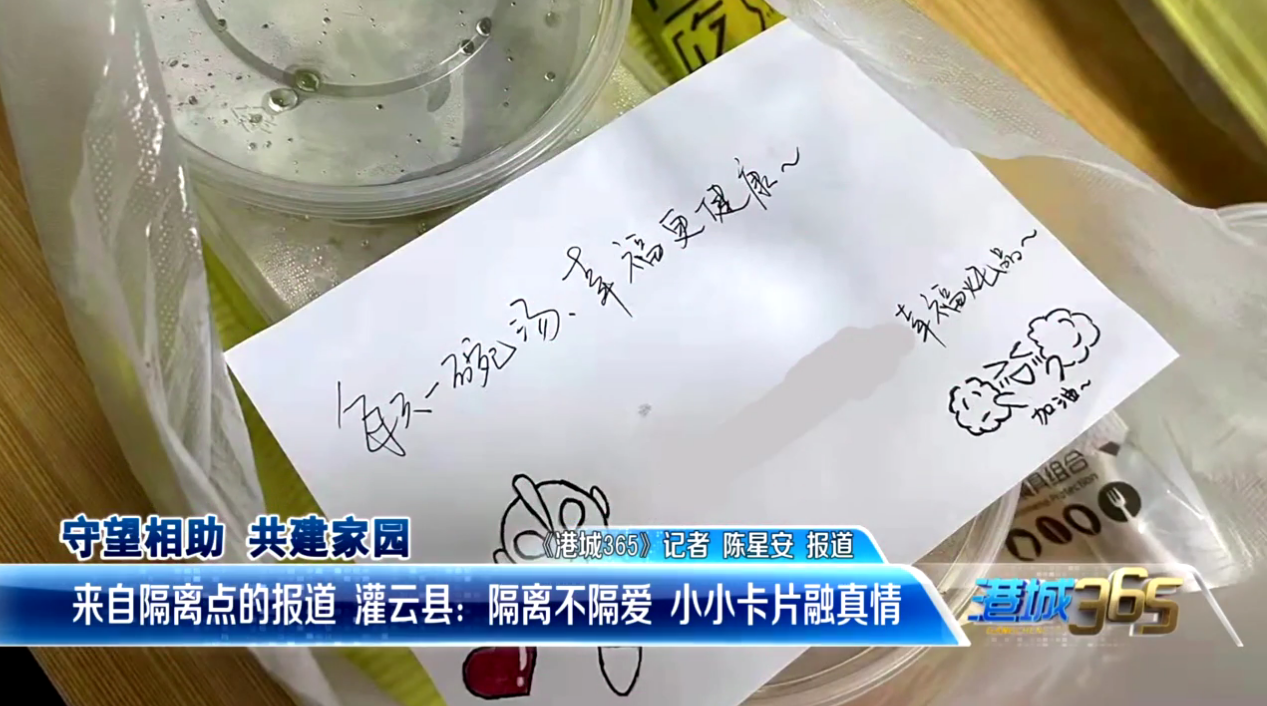 吃
每天一碗汤、幸福更健康~
幸福炖品~
加油~
具组合
守望相助 共建家园
《港城365》记者 陈星安 报道
来自隔离点的报道 灌云县：隔离不隔爱 小小卡片融真情
港城365